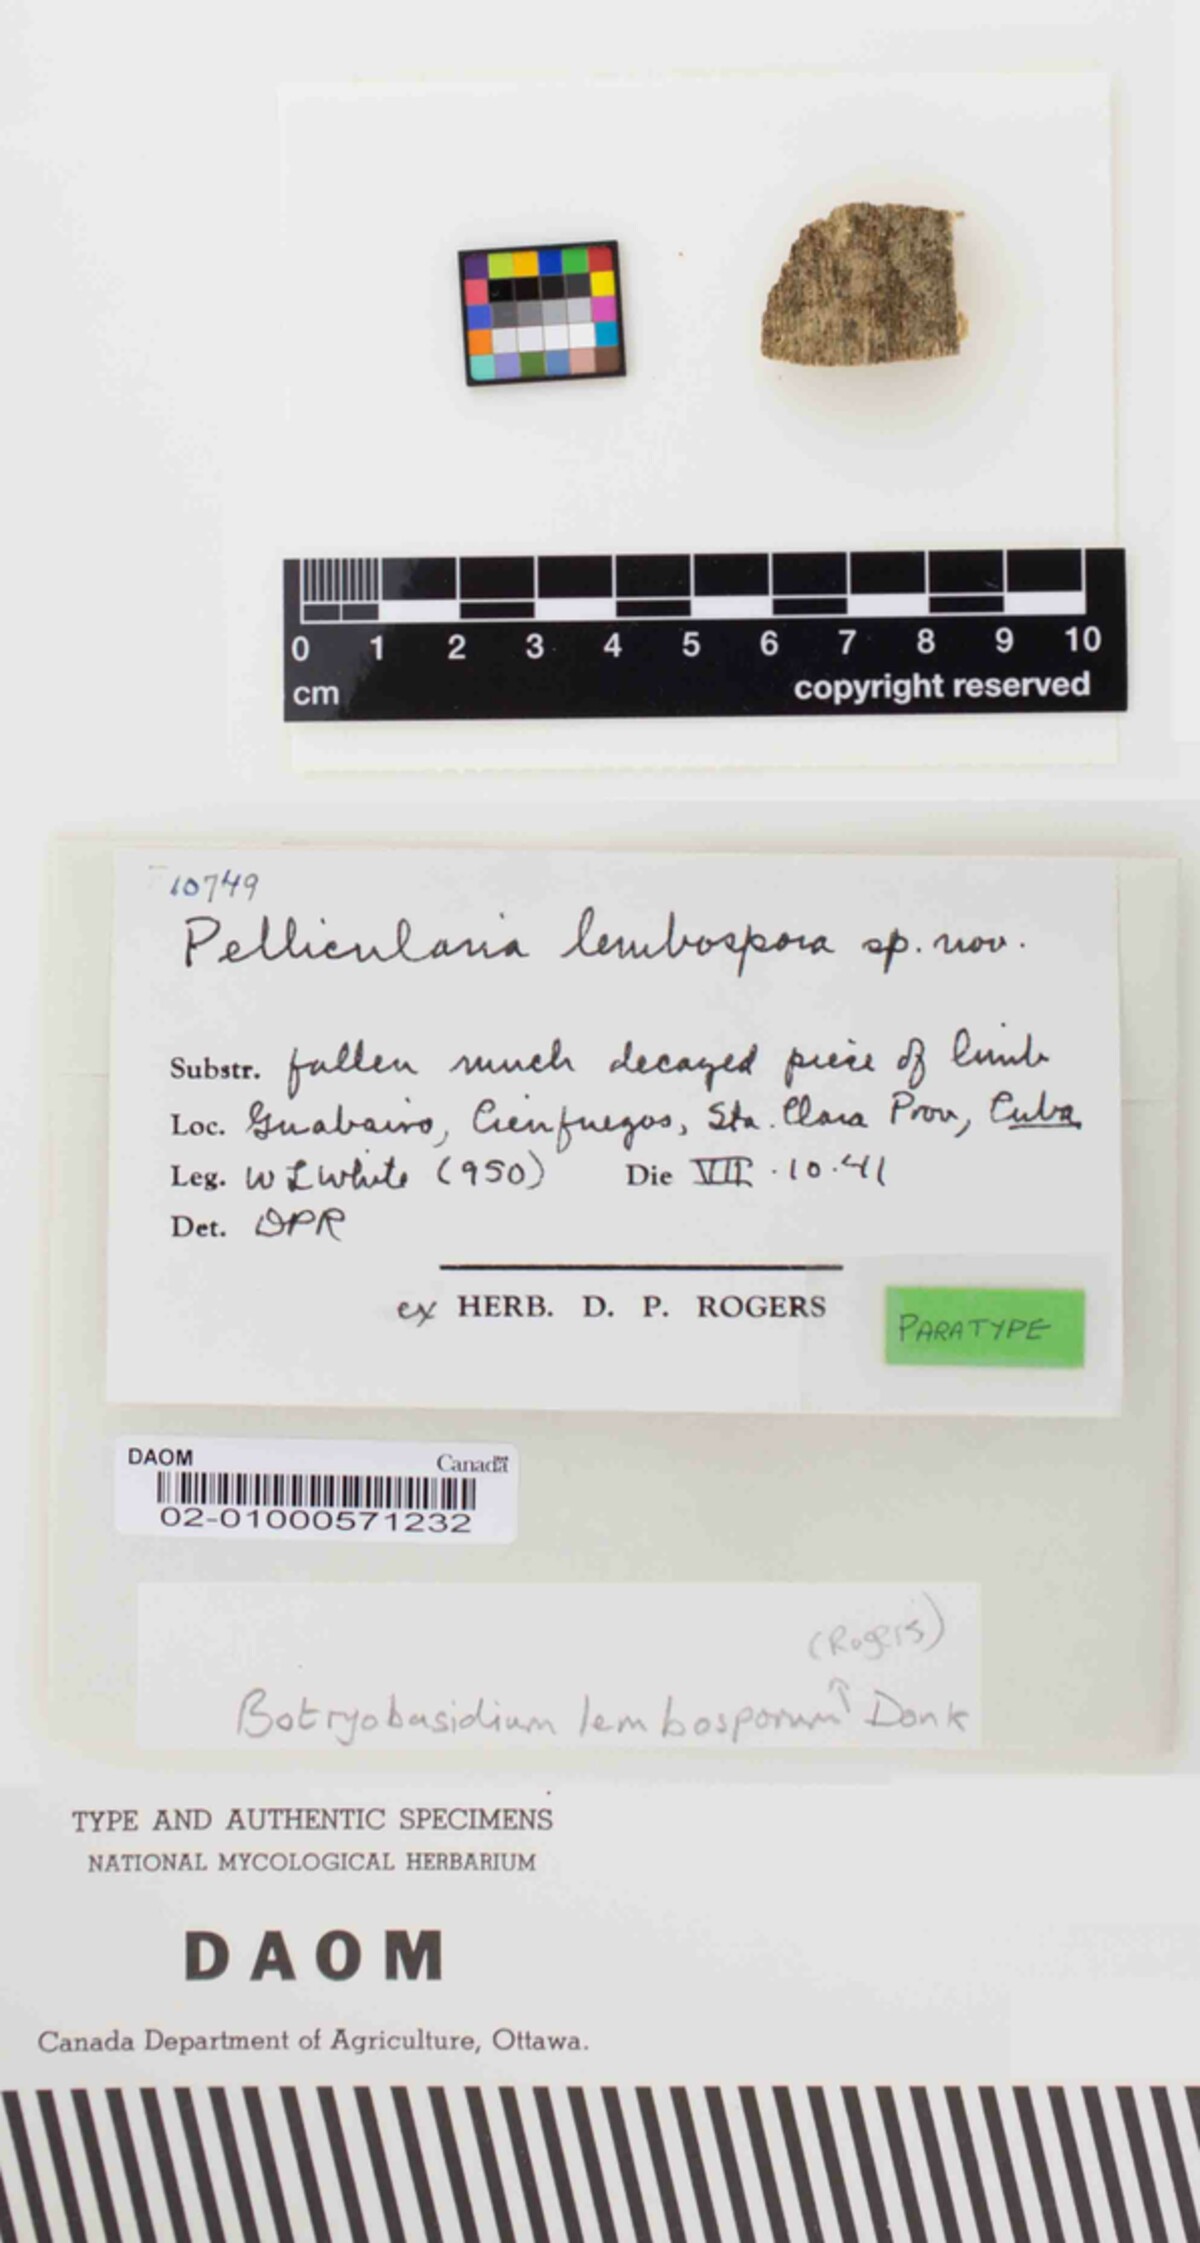 0 1 2 3 4 5 6 7 8 9 10
cm copyright reserved
10749
Pellicularia lembospora sp. nov.
Substr. fallen much decayed piece of limb
Loc. Guabairo, Cienfuegos, Sta. Clara Prov, Cuba
Leg. W L White (950) Die VII · 10 · 41
Det. DPR
ex HERB. D. P. ROGERS
PARATYPE
DAOM Canada
02-01000571232
(Rogers)
Botryobasidium lembosporum ↑ Donk
TYPE AND AUTHENTIC SPECIMENS
NATIONAL MYCOLOGICAL HERBARIUM
DAOM
Canada Department of Agriculture, Ottawa.